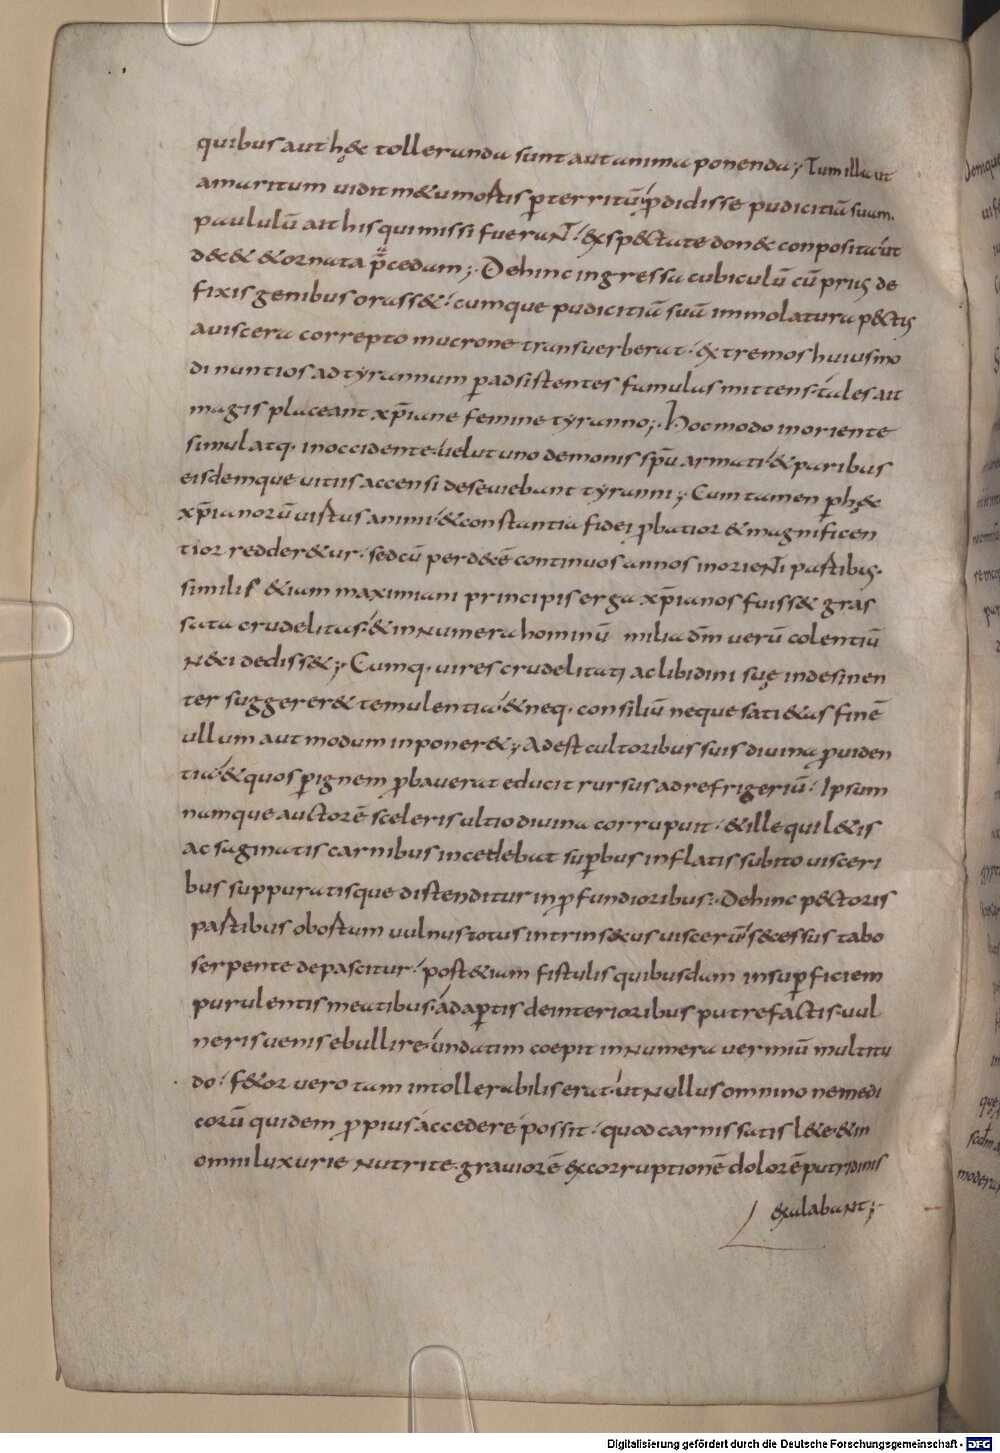 quibus aut hęc tolleranda sunt aut anima ponenda; Tum illa ut
amaritum uidit m&u mortis ꝑterritū ꝓdidisse pudicitiā suam.
paululū ait his qui missi fueraNT· exsp&ctate donec conposita ut
dec& & ornata p̄cedam; Dehinc ingressa cubiculū cū prius de
fixis genibus orass&· cumque pudicitiā suā immolatura p&ctus
a uiscera correpto mucrone transuerberat· extremos huiusmo
di nuntios ad tyrannum ꝑ adsistentes famulas mittens· tales ait
magis placeant xp̄iane femine tyranno; Hoc modo in oriente
simul atq· in occidente uelut uno demonis sp̄u armati & paribus
eisdemque uitiis accensi deseuiebant tyranni; Cum tamen ꝑ hęc
xp̄ianorū uirtus animi & constantia fidei ꝓbatior & magnificen
tior redder&ur· sed cū per dec& ē continuos annos in orieNTi partibus
similis &iam maximiani principis erga xp̄ianos fuiss& gras
sata crudelitas & inNumera hominū milia dm̄ uerū colentiū
N&ci dediss&; Cumq· uires crudelitati ac libidini suę indesinen
ter suggerer& temulentia & neq· consiliū neque sati&as finē
ullum aut modum inponer&; Adest cultoribus suis diuina ꝓuiden
tia & quos ꝑ ignem ꝓbauerat educit rursus ad refrigeriū· Ipsum
namque auctorē sceleris ultio diuina corrupuit· & ille qui l&is
ac saginatis carnibus incedebat suꝑbus inflatis subito uisceri
bus suppuratisque distenditur in ꝓfundioribus· Dehinc p&ctoris
partibus obortum uulnus totus intrins&cus uiscerū s&cessus tabo
serpente depascitur· post &iam fistulis quibusdam in suꝑficiem
purulentis meatibus adaꝑtis de interioribus putrefactis uul
neris uenis ebullire undatim coepit inNumera uermiū multitu
do· f&or uero tam intollerabilis erat ut Nullus omnino ne medi
corū quidem ꝓpius accedere possit· quod carnis satis l&e & in
omni luxurie Nutrite grauiorē ex corruptionē dolorē putridinis
exalabaNt;